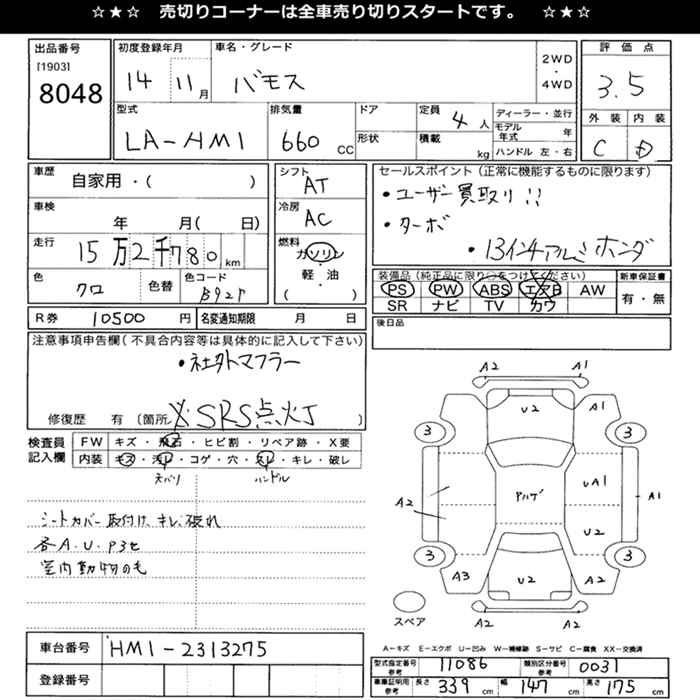 ☆★☆ 売切りコーナーは全車売り切りスタートです。 ☆★☆
出品番号
[1903]
8048
初度登録年月
14 11 月
車名・グレード
バモス
2WD
・
4WD
評価点
3.5
型式
LA-HM1
排気量
660 CC
ドア
形状
定員
4 人
積載
kg
ディーラー・並行
モデル年式 年
ハンドル 左・右
外装 内装
C D
車歴
自家用・( )
シフト
AT
セールスポイント(正常に機能するものに限ります)
・ユーザー買取り!!
・ターボ
・13インチアルミホンダ
車検
年 月( 日)
冷房
AC
走行
15万2千780 km
燃料
ガソリン
・
軽・油
( )
色
クロ
色替
色コード
B92P
装備品(純正品に限り○をつけてください)
PS PW ABS エアB AW
SR ナビ TV カワ
新車保証書
有・無
R券 10500 円
名変通知期限 月 日
後日品
注意事項申告欄(不具合内容等は具体的に記入して下さい)
・社外マフラー
修復歴 有(箇所 SRS点灯 )
検査員記入欄
FW キズ・飛石・ヒビ割・リペア跡・X要
内装 キズ・汚レ・コゲ・穴・スレ・キレ・破レ
天バリ ハンドル
シートカバー取付け、キレ、破れ
各A.U.P3セ
室内動物のも
A2 A1
U2
A1
3 3
UA1
アルゲ
A2 A1
U2
3 3
A3 U2 A2
A2 A2
スペア
A―キズ E―エクボ U―凹み W―補修跡 S―サビ C―腐食 XX―交換済
車台番号 HM1-2313275
登録番号
型式指定番号参考 11086
類別区分番号参考 0031
車庫証明用参考 長さ 339 cm 幅 147 cm 高さ 175 cm